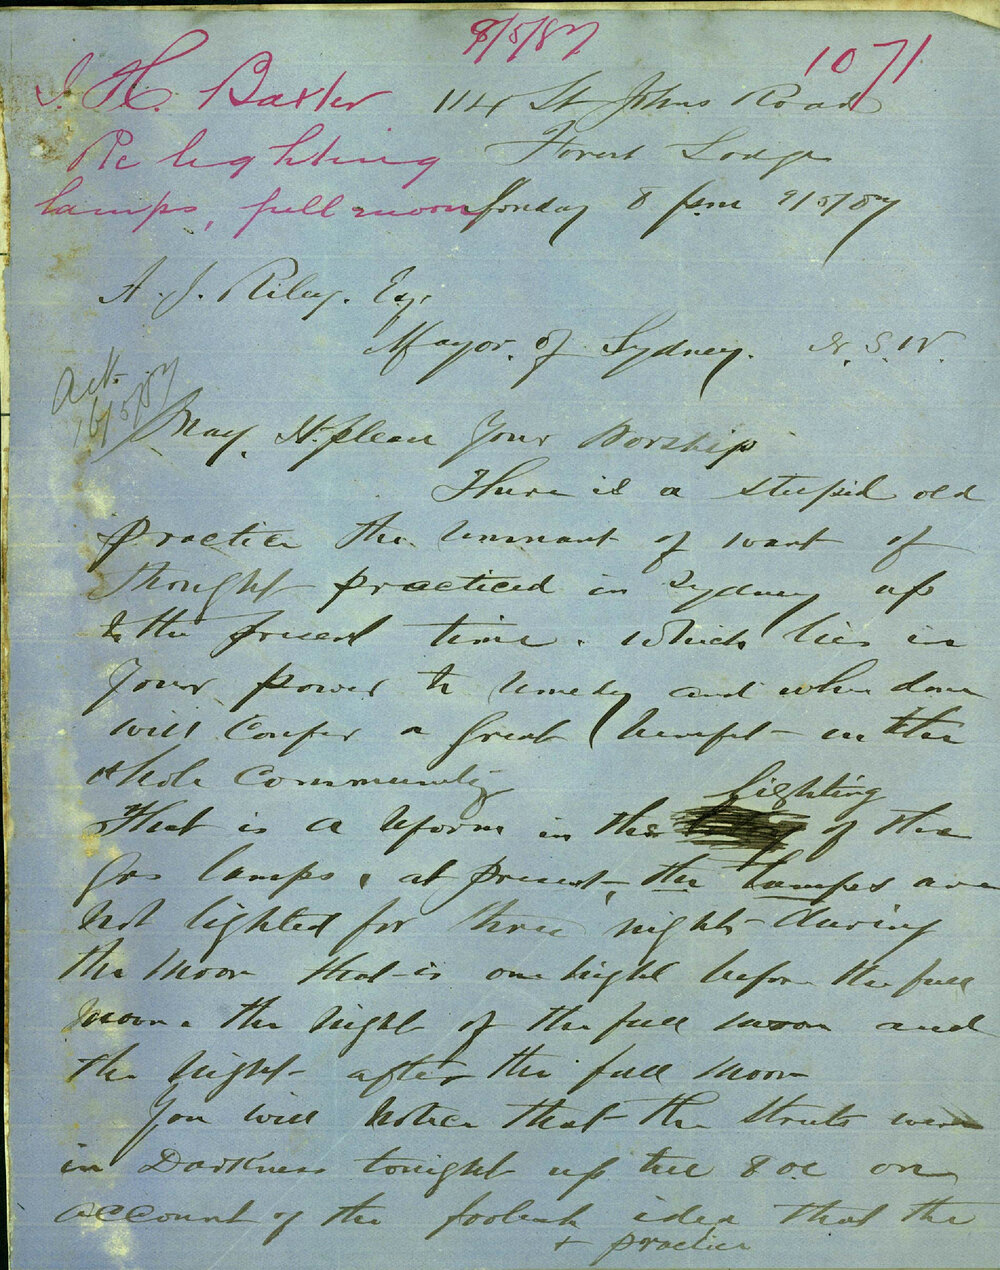 9/5/87
1071
J. H. Baxter
Re lighting
lamps, full moon
114 St Johns Road
Forest Lodge
Monday 8 pm 9/5/87
A. J. Riley. Esq.
Mayor. of Sydney. N. S. W.
Ack.
16/5/87
May It please Your Worship
There is a stupid old
practice the remnant of want of
thought practiced in Sydney up
to the present time. which lies in
Your power to remedy and when done
will confer a great benefit on the
whole community
That is a reform in the lighting of the
gas lamps, at present, the lamps are
not lighted for three nights during
the moon that is one night before the full
moon. the night of the full moon and
the night after the full moon
You will notice that the streets were
in Darkness tonight up till 8 oc on
account of the foolish idea that the
+ practice